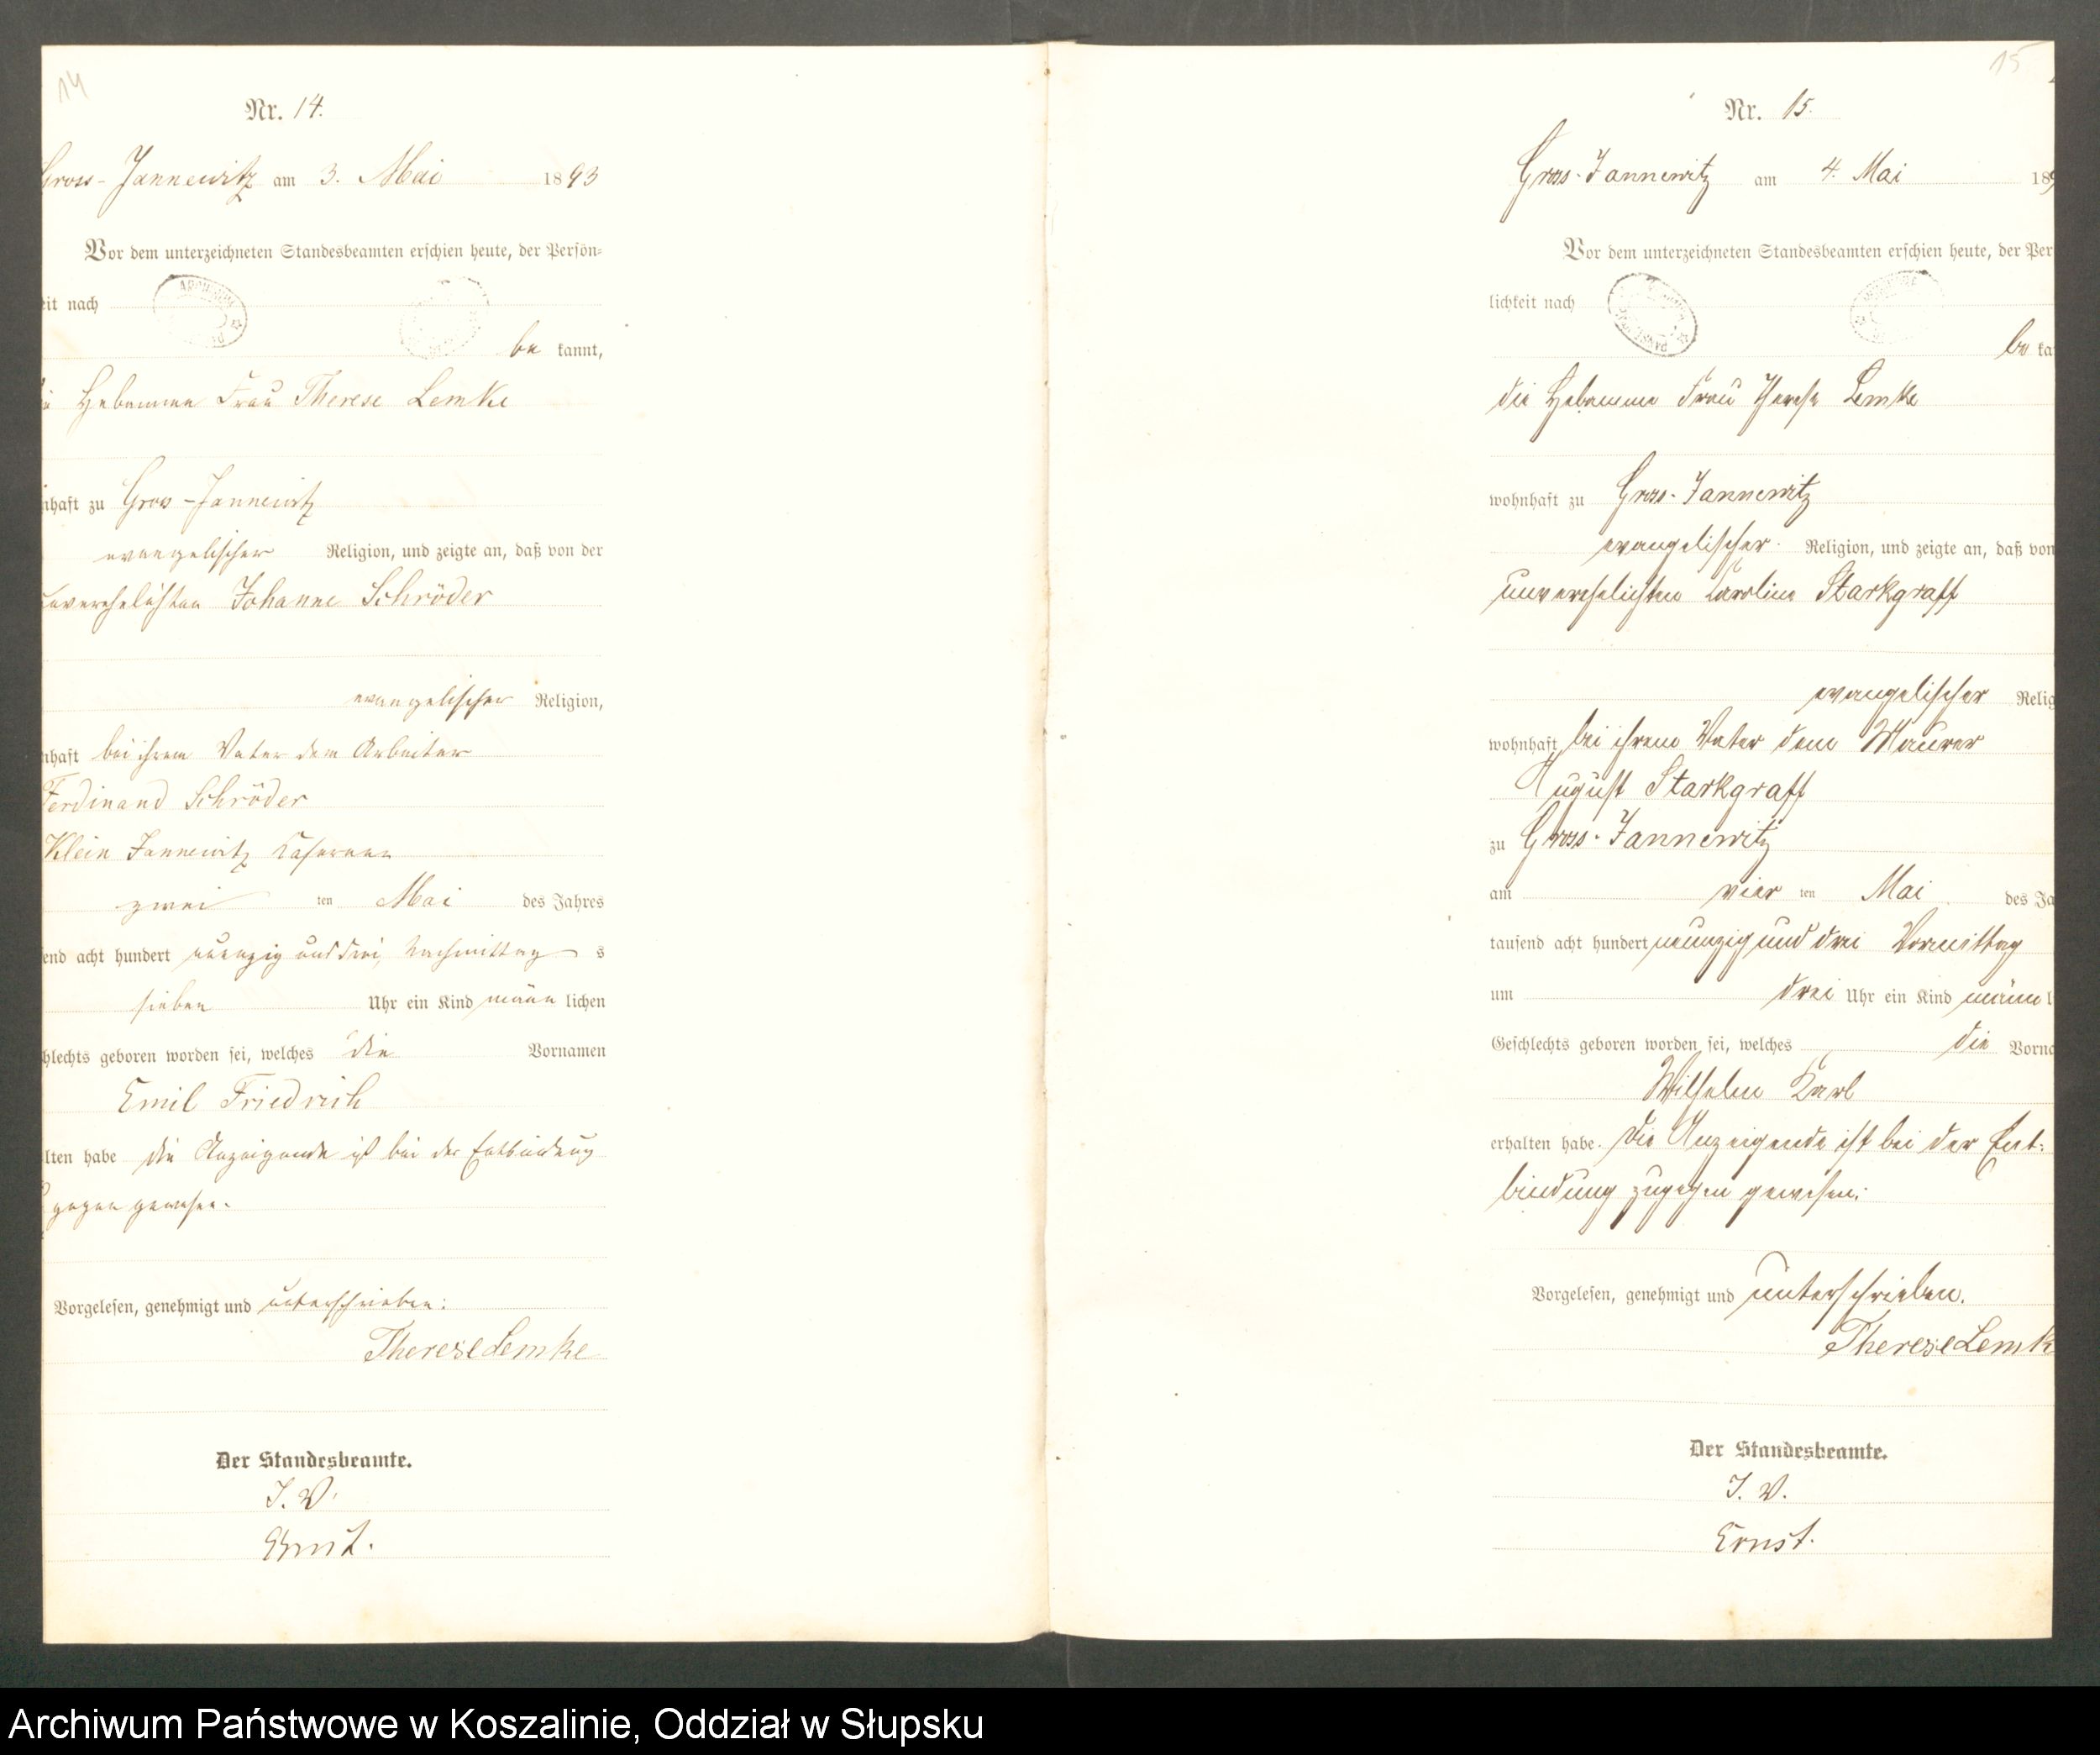 14
Nr. 14.
Gross-Jannewitz am 3. Mai 1893
Vor dem unterzeichneten Standesbeamten erschien heute, der Persön=
eit nach
be kannt,
Hebamme Frau Therese Lemke
nhaft zu Gross-Jannewitz
evangelischer Religion, und zeigte an, daß von der
unverehelichten Johanne Schröder
evangelischer Religion,
nhaft bei ihrem Vater dem Arbeiter
Ferdinand Schröder
Klein Jannewitz Casernen
zwei ten Mai des Jahres
end acht hundert neunzig und drei, Nachmittag s
sieben Uhr ein Kind männ lichen
hlechts geboren worden sei, welches die Vornamen
Emil Friedrich
lten habe die Anzeigende ist bei der Entbindung
gegen gewesen.
Vorgelesen, genehmigt und unterschrieben:
Therese Lemke
Der Standesbeamte.
J. V.
Ernst.
15
Nr. 15.
Gross-Jannewitz am 4. Mai 189
Vor dem unterzeichneten Standesbeamten erschien heute, der Per
lichkeit nach
be ka
die Hebamme Frau Therese Lemke
wohnhaft zu Gross-Jannewitz
evangelischer Religion, und zeigte an, daß von
unverehelichten Caroline Starkgraff
evangelischer Relig
wohnhaft bei ihrem Vater dem Maurer
August Starkgraff
zu Gross-Jannewitz
am vier ten Mai des Ja
tausend acht hundert neunzig und drei Vormittag
um drei Uhr ein Kind männ l
Geschlechts geboren worden sei, welches die Vorna
Wilhelm Karl
erhalten habe. Die Anzeigende ist bei der Ent-
bindung zugegen gewesen.
Vorgelesen, genehmigt und unterschrieben.
Therese Lemk
Der Standesbeamte.
J. V.
Ernst.
Archiwum Państwowe w Koszalinie, Oddział w Słupsku